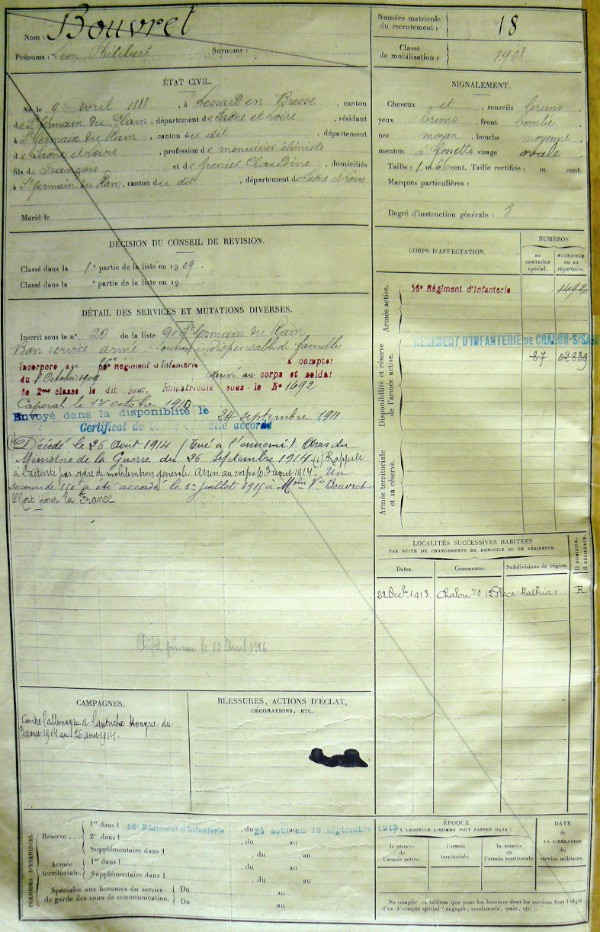 Nom : Bouvret
Prénoms : Léon Philibert Surnoms :
Numéro matricule du recrutement : 18
Classe de mobilisation : 1908
ÉTAT CIVIL.
Né le 9 Avril 1888, à Lessard en Bresse, canton
de St Germain du Plain, département de Saône et Loire, résidant
à St Germain du Plain, canton du dit, département
de Saône et Loire, profession de menuisier ébéniste
fils de François et de Grenier Claudine, domiciliés
à St Germain du Plain, canton du dit, département de Saône et Loire
Marié le
SIGNALEMENT.
Cheveux et sourcils bruns
yeux bruns front bombé
nez moyen bouche moyenne
menton à fossette visage ovale
Taille : 1 m. 66 cent. Taille rectifiée : m. cent.
Marques particulières :
Degré d'instruction générale : 3
DÉCISION DU CONSEIL DE REVISION.
Classé dans la 1e partie de la liste en 1909.
Classé dans la partie de la liste en 19
DÉTAIL DES SERVICES ET MUTATIONS DIVERSES.
Inscrit sous le n° 20 de la liste de St Germain du Plain
Bon service armé Soutien indispensable de famille
Incorporé au 56e Régiment d'Infanterie à compter
du 7 Octobre 1909 arrivé au corps et soldat
de 2me classe le dit jour, Immatriculé sous le No 1692
Caporal le 1er octobre 1910
Envoyé dans la disponibilité le 24 septembre 1911
Certificat de bonne conduite accordé
Décédé le 26 Août 1914 (Tué à l'ennemi). Avis du
Ministère de la Guerre du 26 Septembre 1914 (1) Rappelé
à l'activité par ordre de mobilisation générale. Arrivé au corps le 3 août 1914. Un
secours de 150f a été accordé le 1er juillet 1915 à Mme Vve Bouvret
Mort pour la France
le 12 Avril 1916
CORPS D'AFFECTATION.
NUMÉROS
au contrôle spécial.
matricule ou au répertoire.
Armée active.
56e Régiment d'Infanterie
Disponibilité et réserve de l'armée active.
RÉGIMENT D'INFANTERIE DE CHALON-S/SAÔNE
Armée territoriale et sa réserve.
LOCALITÉS SUCCESSIVES HABITÉES
PAR SUITE DE CHANGEMENTS DE DOMICILE OU DE RÉSIDENCE.
Dates. Communes. Subdivisions de région. D. domicile. R. résidence.
22 Dec. 1913 Chalon Place Mathias R
CAMPAGNES.
Contre l'Allemagne et l'Autriche Hongrie du
3 août 1914 au 26 août 1914.
BLESSURES, ACTIONS D'ÉCLAT,
DÉCORATIONS, ETC.
PÉRIODES D'EXERCICES.
Réserve 1re dans l 56e Régiment d'Infanterie, du 25 août au 10 septembre 1913
2e dans l , du au
Supplémentaire dans l , du au
Armée territoriale. 1re dans l , du au
Supplémentaire dans l , du au
Spéciales aux hommes du service de garde des voies de communication. Du au
Du au
ÉPOQUE
À LAQUELLE L'HOMME DOIT PASSER DANS :
la réserve de l'armée active.
l'armée territoriale.
la réserve de l'armée territoriale.
DATE
DE LA LIBÉRATION
du service militaire.
Ne remplir ce tableau que pour les hommes dont les services font l'objet
d'un compte spécial (engagés, condamnés, omis, etc.).